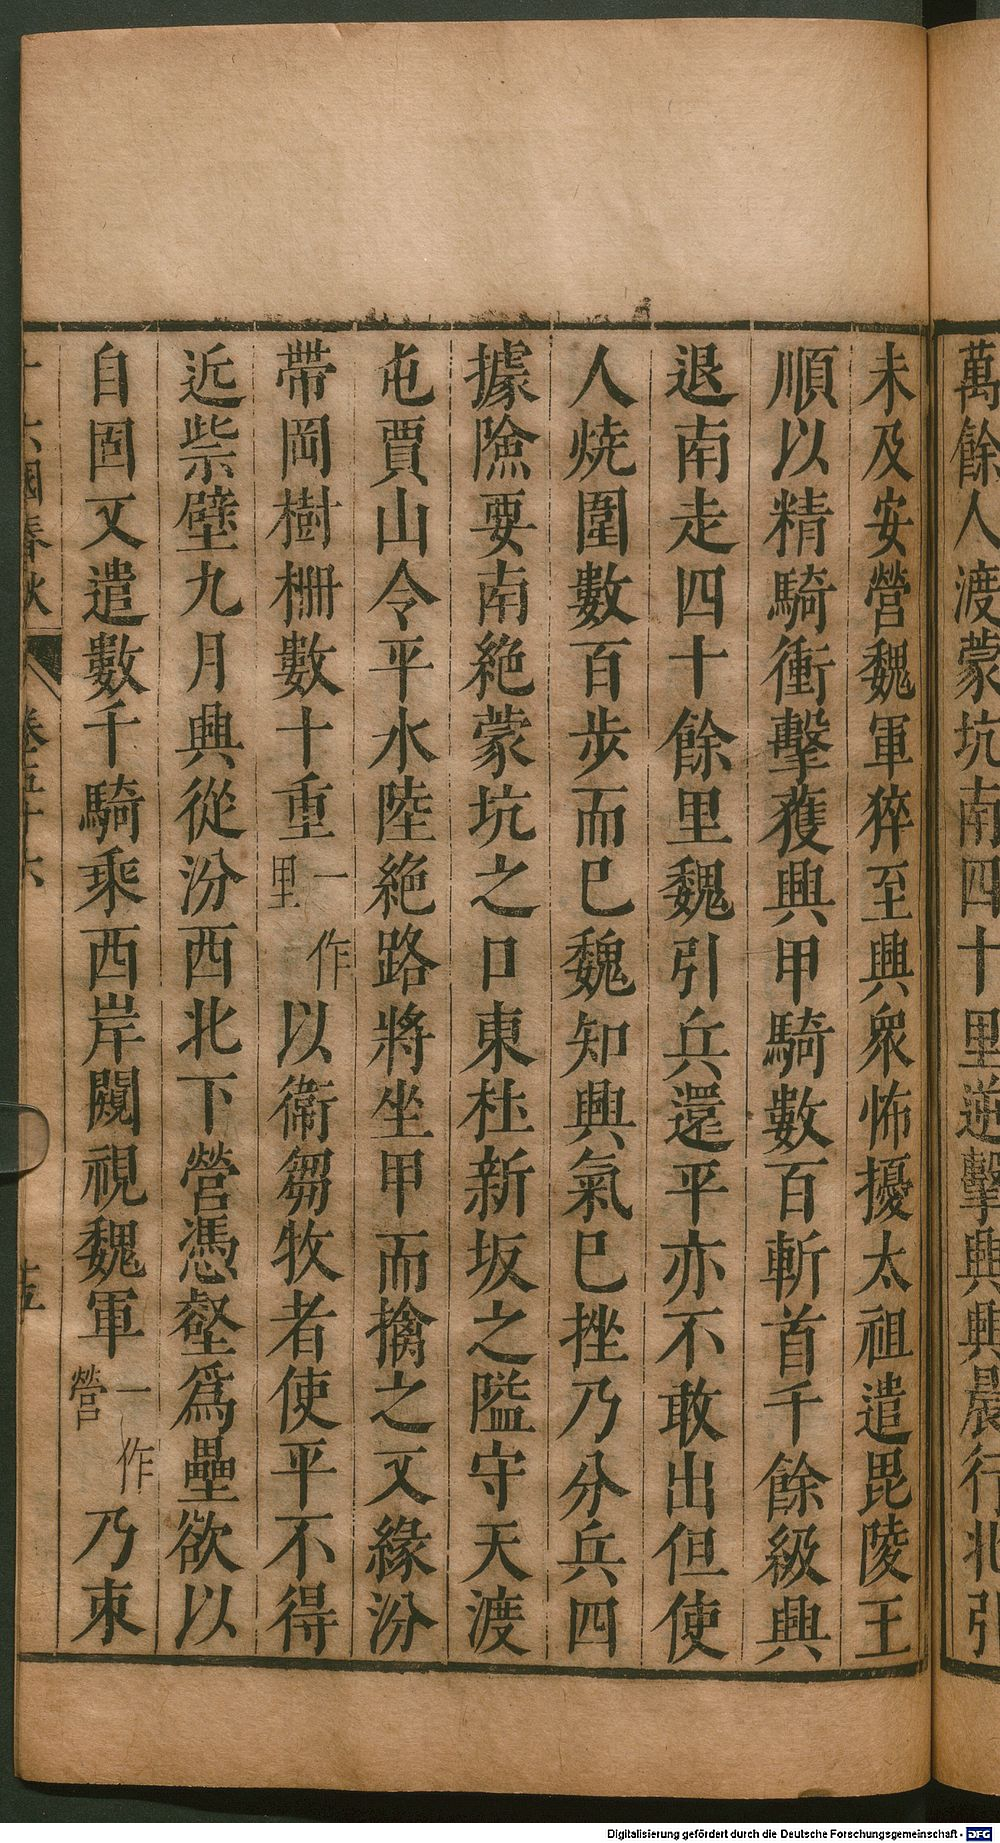 萬餘人渡蒙坑南四十里逆擊興興晨行北引
未及安營魏軍猝至興衆怖擾太祖遣毘陵王
順以精騎衝擊獲興甲騎數百斬首千餘級興
退南走四十餘里魏引兵還平亦不敢出但使
人燒圍數百步而巳魏知興氣巳挫乃分兵四
據險要南絶蒙坑之口東杜新坂之隘守天渡
屯賈山令平水陸絶路將坐甲而擒之又緣汾
帶岡樹柵數十重一作里以衞芻牧者使平不得
近柴壁九月興從汾西北下營憑壑爲壘欲以
自固又遣數千騎乘西岸闚視魏軍一作營乃東
十六國春秋 卷五十六 十五
Digitalisierung gefördert durch die Deutsche Forschungsgemeinschaft - DFG